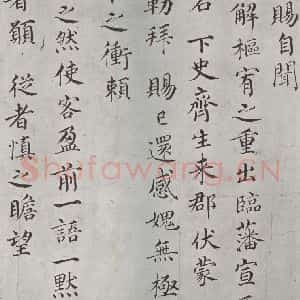 賜自聞
解樞宥之重出臨藩宣
下史齊生來郡伏蒙
拜賜已還感媿無極
之衝頼
之然使客盈前一語一黙
者願 從者慎之瞻望
Shufawang.CN